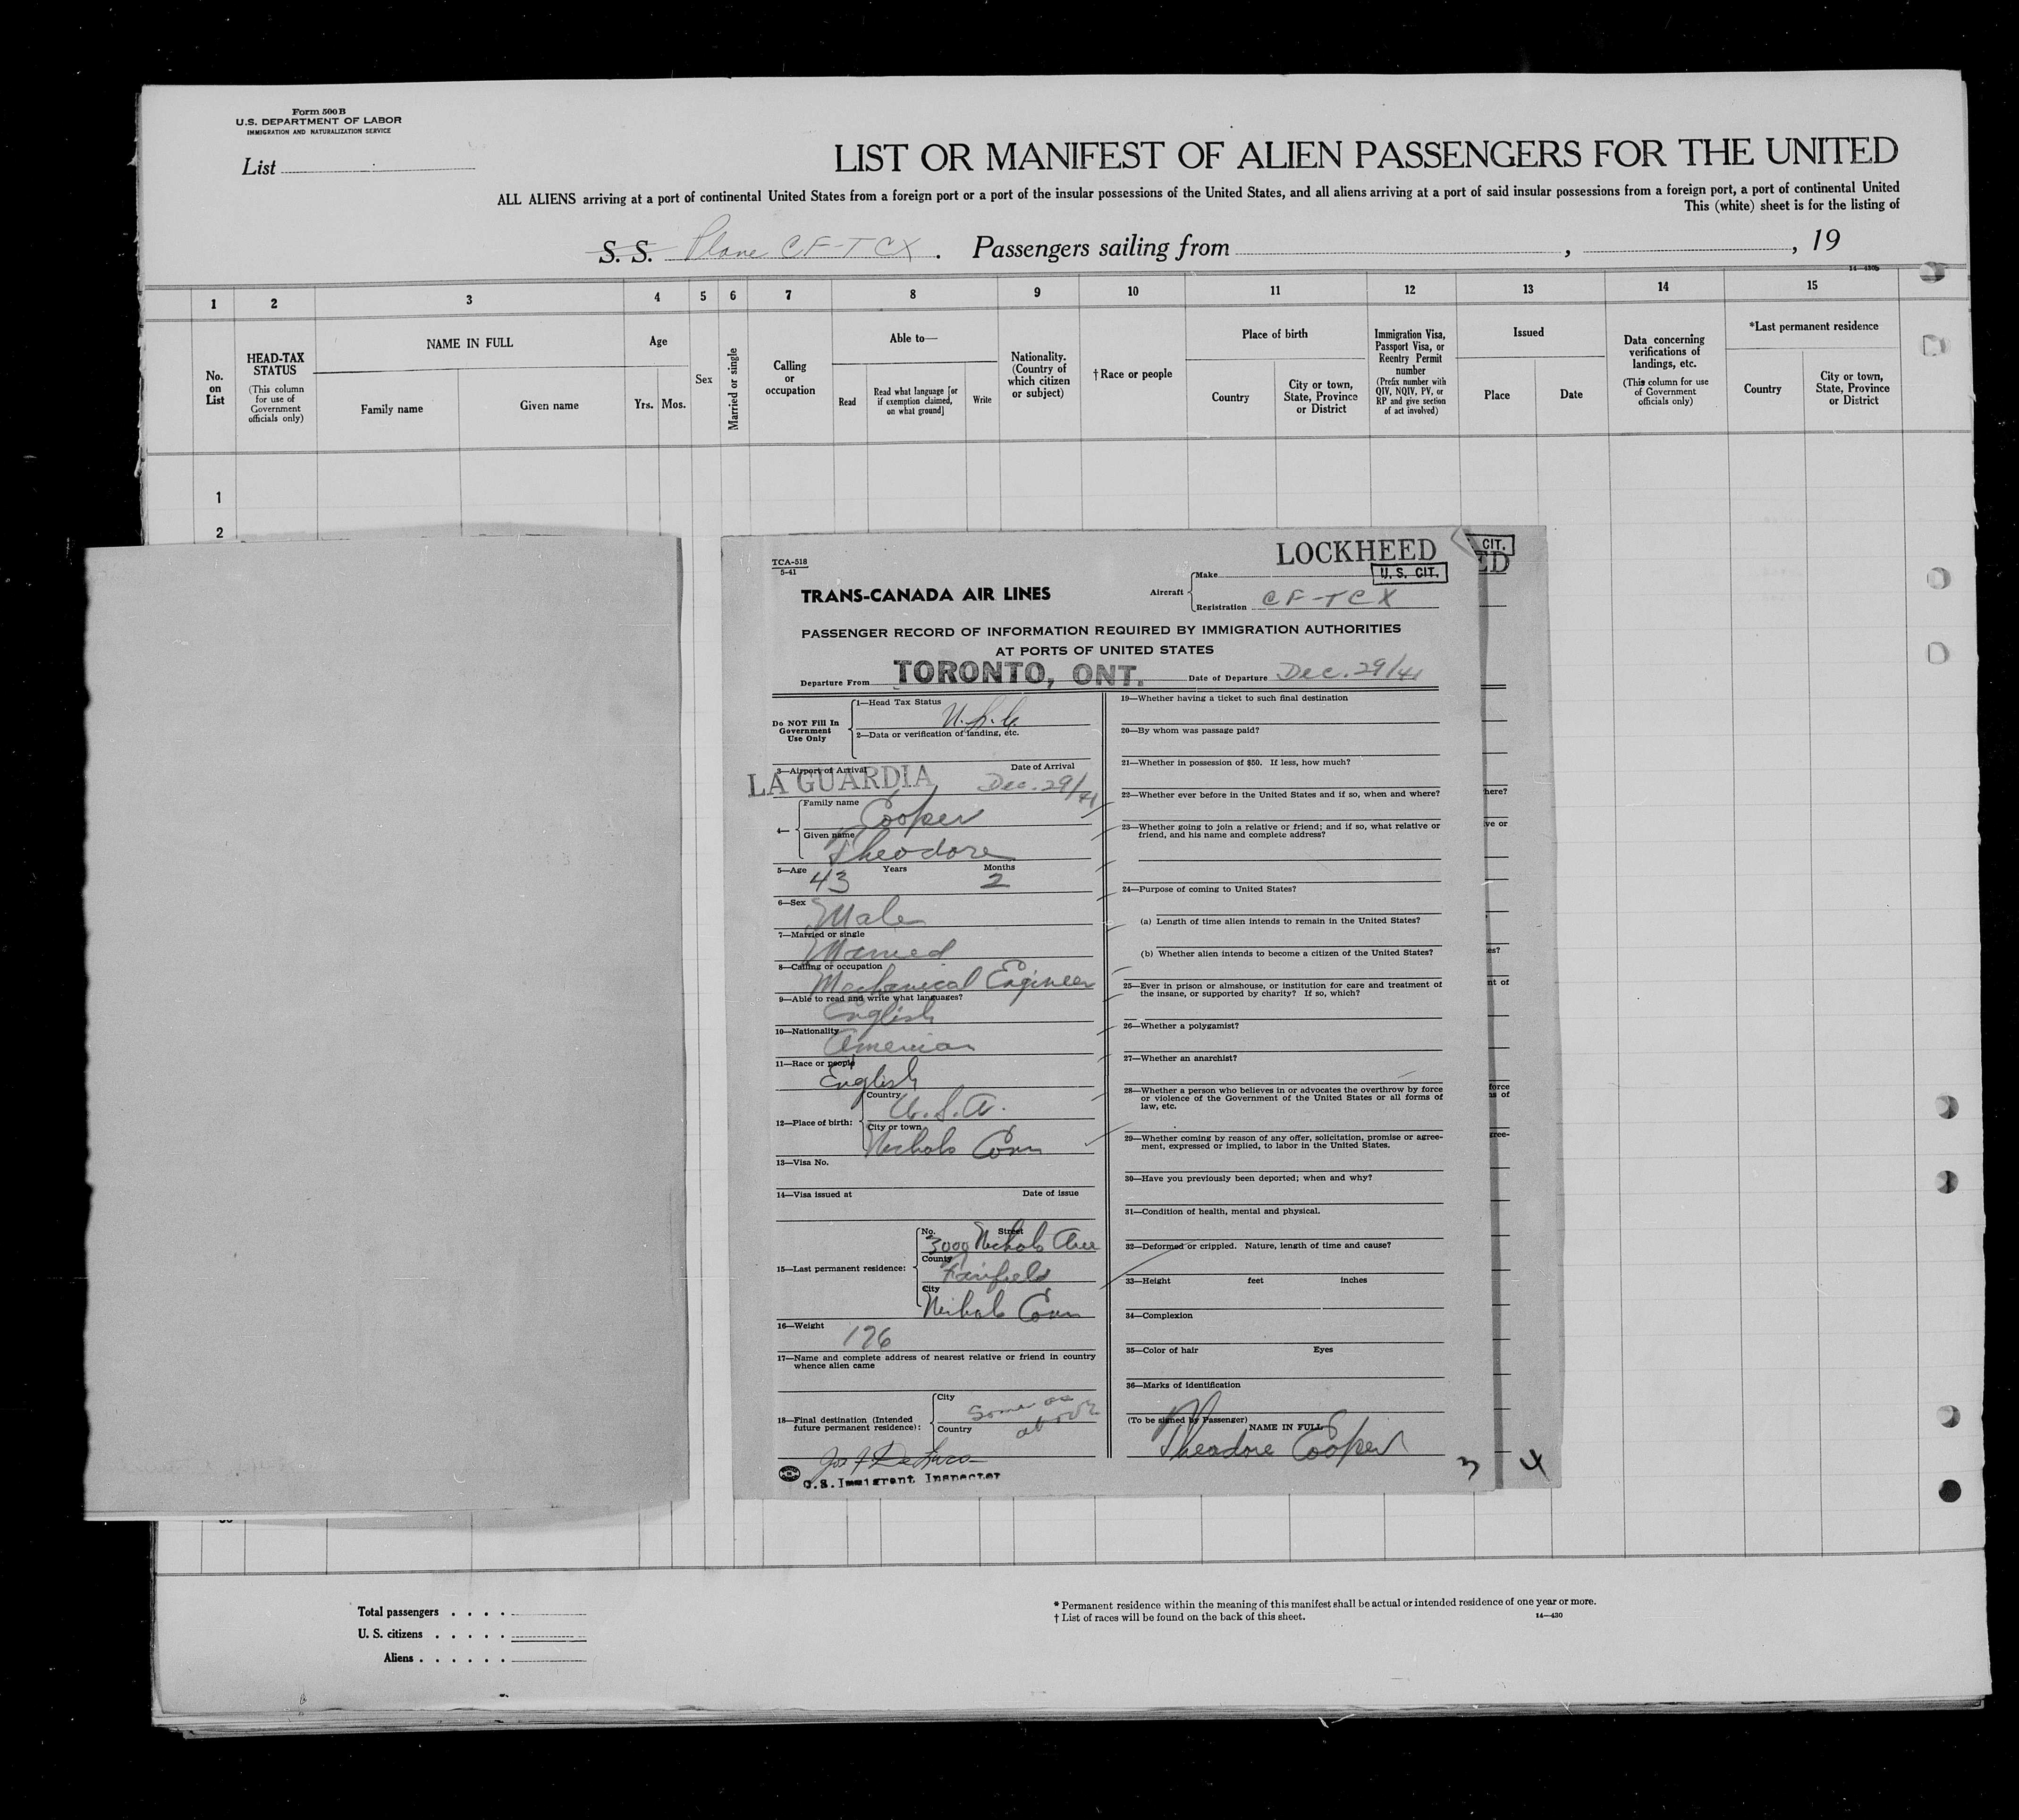 Form 500 B
U.S. DEPARTMENT OF LABOR
IMMIGRATION AND NATURALIZATION SERVICE
List
LIST OR MANIFEST OF ALIEN PASSENGERS FOR THE UNITED
ALL ALIENS arriving at a port of continental United States from a foreign port or a port of the insular possessions of the United States, and all aliens arriving at a port of said insular possessions from a foreign port, a port of continental United
This (white) sheet is for the listing of
S. S. Plane CF-TCX. Passengers sailing from , , 19
14—430b
1 2 3 4 5 6 7 8 9 10 11 12 13 14 15
No. on List
HEAD-TAX STATUS
(This column for use of Government officials only)
NAME IN FULL
Family name
Given name
Age
Yrs. Mos.
Sex
Married or single
Calling or occupation
Able to—
Read
Read what language [or if exemption claimed, on what ground]
Write
Nationality. (Country of which citizen or subject)
†Race or people
Place of birth
Country
City or town, State, Province or District
Immigration Visa, Passport Visa, or Reentry Permit number
(Prefix number with QIV, NQIV, PV, or RP and give section of act involved)
Issued
Place
Date
Data concerning verifications of landings, etc.
(This column for use of Government officials only)
*Last permanent residence
Country
City or town, State, Province or District
1
2
TCA-518
5-41
LOCKHEED
CIT.
ED
TRANS-CANADA AIR LINES
Aircraft
Make
U. S. CIT.
Registration CF-TCX
PASSENGER RECORD OF INFORMATION REQUIRED BY IMMIGRATION AUTHORITIES
AT PORTS OF UNITED STATES
Departure From TORONTO, ONT. Date of Departure Dec. 29/41
Do NOT Fill In Government Use Only
1—Head Tax Status
U.S.C.
2—Data or verification of landing, etc.
3—Airport of Arrival Date of Arrival
LA GUARDIA Dec. 29/41
4— Family name Cooper
Given name Theodore
5—Age Years Months
43 2
6—Sex
Male
7—Married or single
Married
8—Calling or occupation
Mechanical Engineer
9—Able to read and write what languages?
English
10—Nationality
American
11—Race or people
English
12—Place of birth:
Country
U.S.A.
City or town
Nichols Conn
13—Visa No.
14—Visa issued at Date of issue
15—Last permanent residence:
No. Street
3000 Nichols Ave
County
Fairfield
City
Nichols Conn
16—Weight
176
17—Name and complete address of nearest relative or friend in country
whence alien came
18—Final destination (Intended
future permanent residence):
City
Same as
Country
above
U.S. Immigrant Inspector
19—Whether having a ticket to such final destination
20—By whom was passage paid?
21—Whether in possession of $50. If less, how much?
22—Whether ever before in the United States and if so, when and where?
23—Whether going to join a relative or friend; and if so, what relative or
friend, and his name and complete address?
24—Purpose of coming to United States?
(a) Length of time alien intends to remain in the United States?
(b) Whether alien intends to become a citizen of the United States?
25—Ever in prison or almshouse, or institution for care and treatment of
the insane, or supported by charity? If so, which?
26—Whether a polygamist?
27—Whether an anarchist?
28—Whether a person who believes in or advocates the overthrow by force
or violence of the Government of the United States or all forms of
law, etc.
29—Whether coming by reason of any offer, solicitation, promise or agree-
ment, expressed or implied, to labor in the United States.
30—Have you previously been deported; when and why?
31—Condition of health, mental and physical.
32—Deformed or crippled. Nature, length of time and cause?
33—Height feet inches
34—Complexion
35—Color of hair Eyes
36—Marks of identification
(To be signed by Passenger) NAME IN FULL
Theodore Cooper
3 4
here?
ve or
es?
nt of
force
ns of
gree-
Total passengers
U. S. citizens
Aliens
* Permanent residence within the meaning of this manifest shall be actual or intended residence of one year or more.
† List of races will be found on the back of this sheet.
14—430